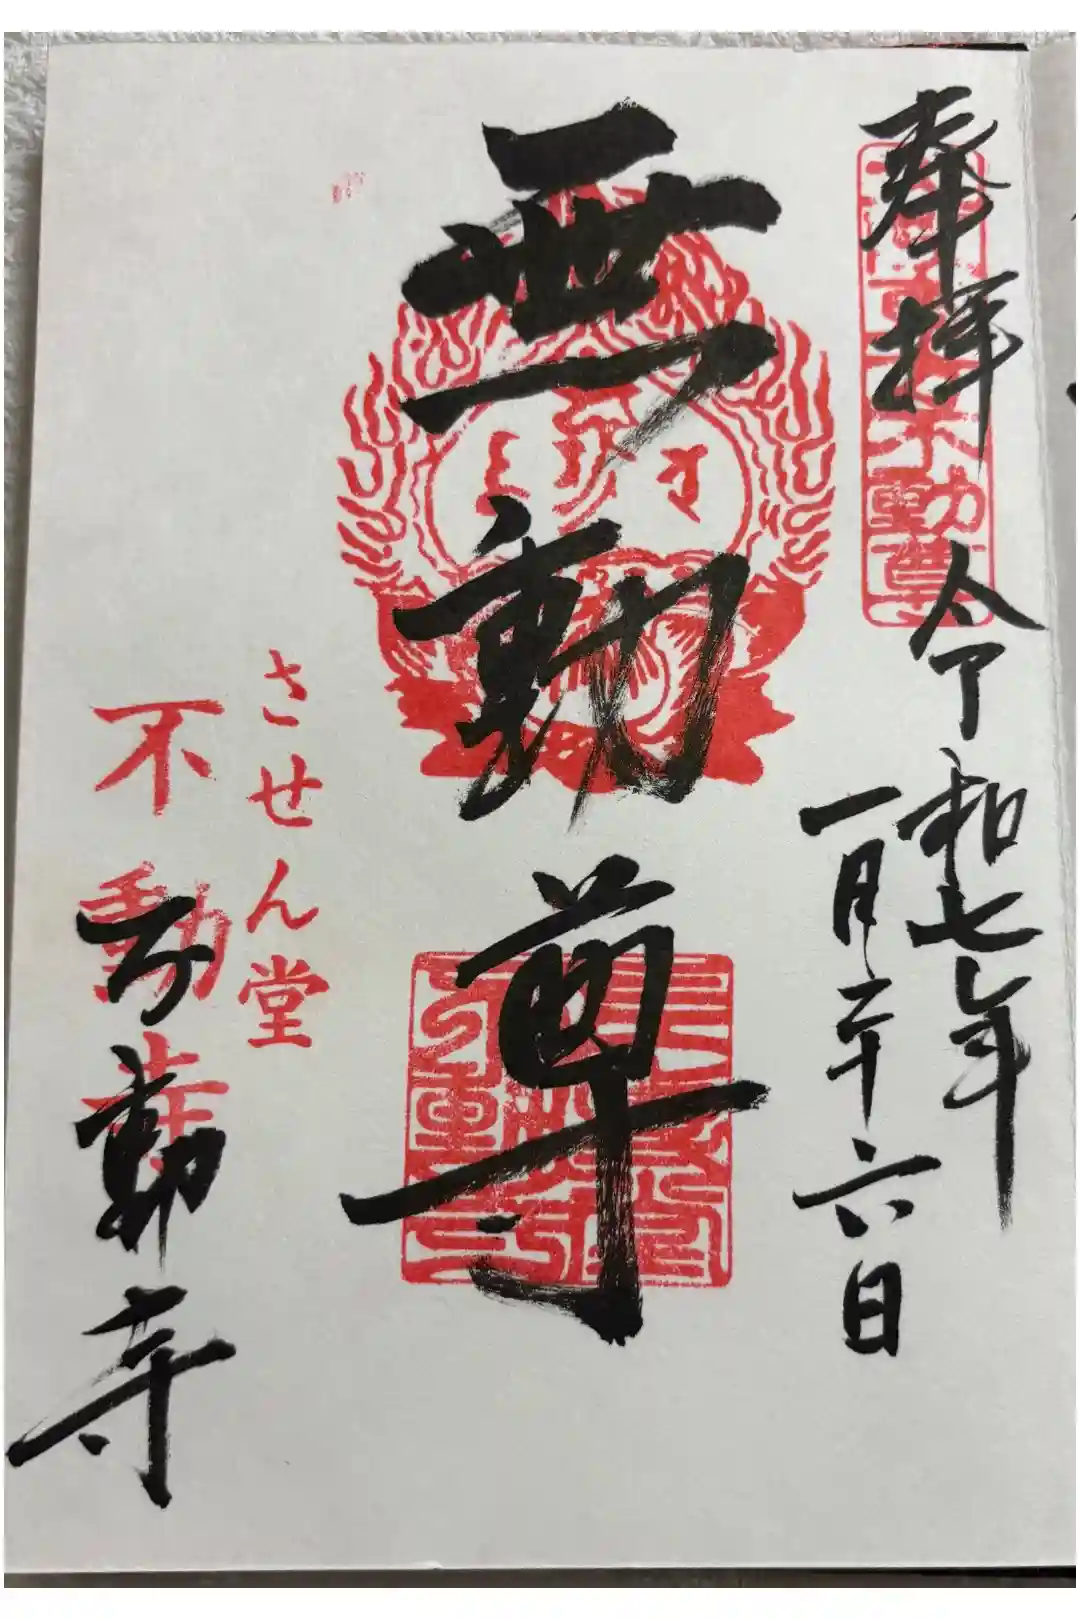 奉拝
令和七年
一月二十六日
不動尊
無動尊
させん堂
不動寺
不動寺